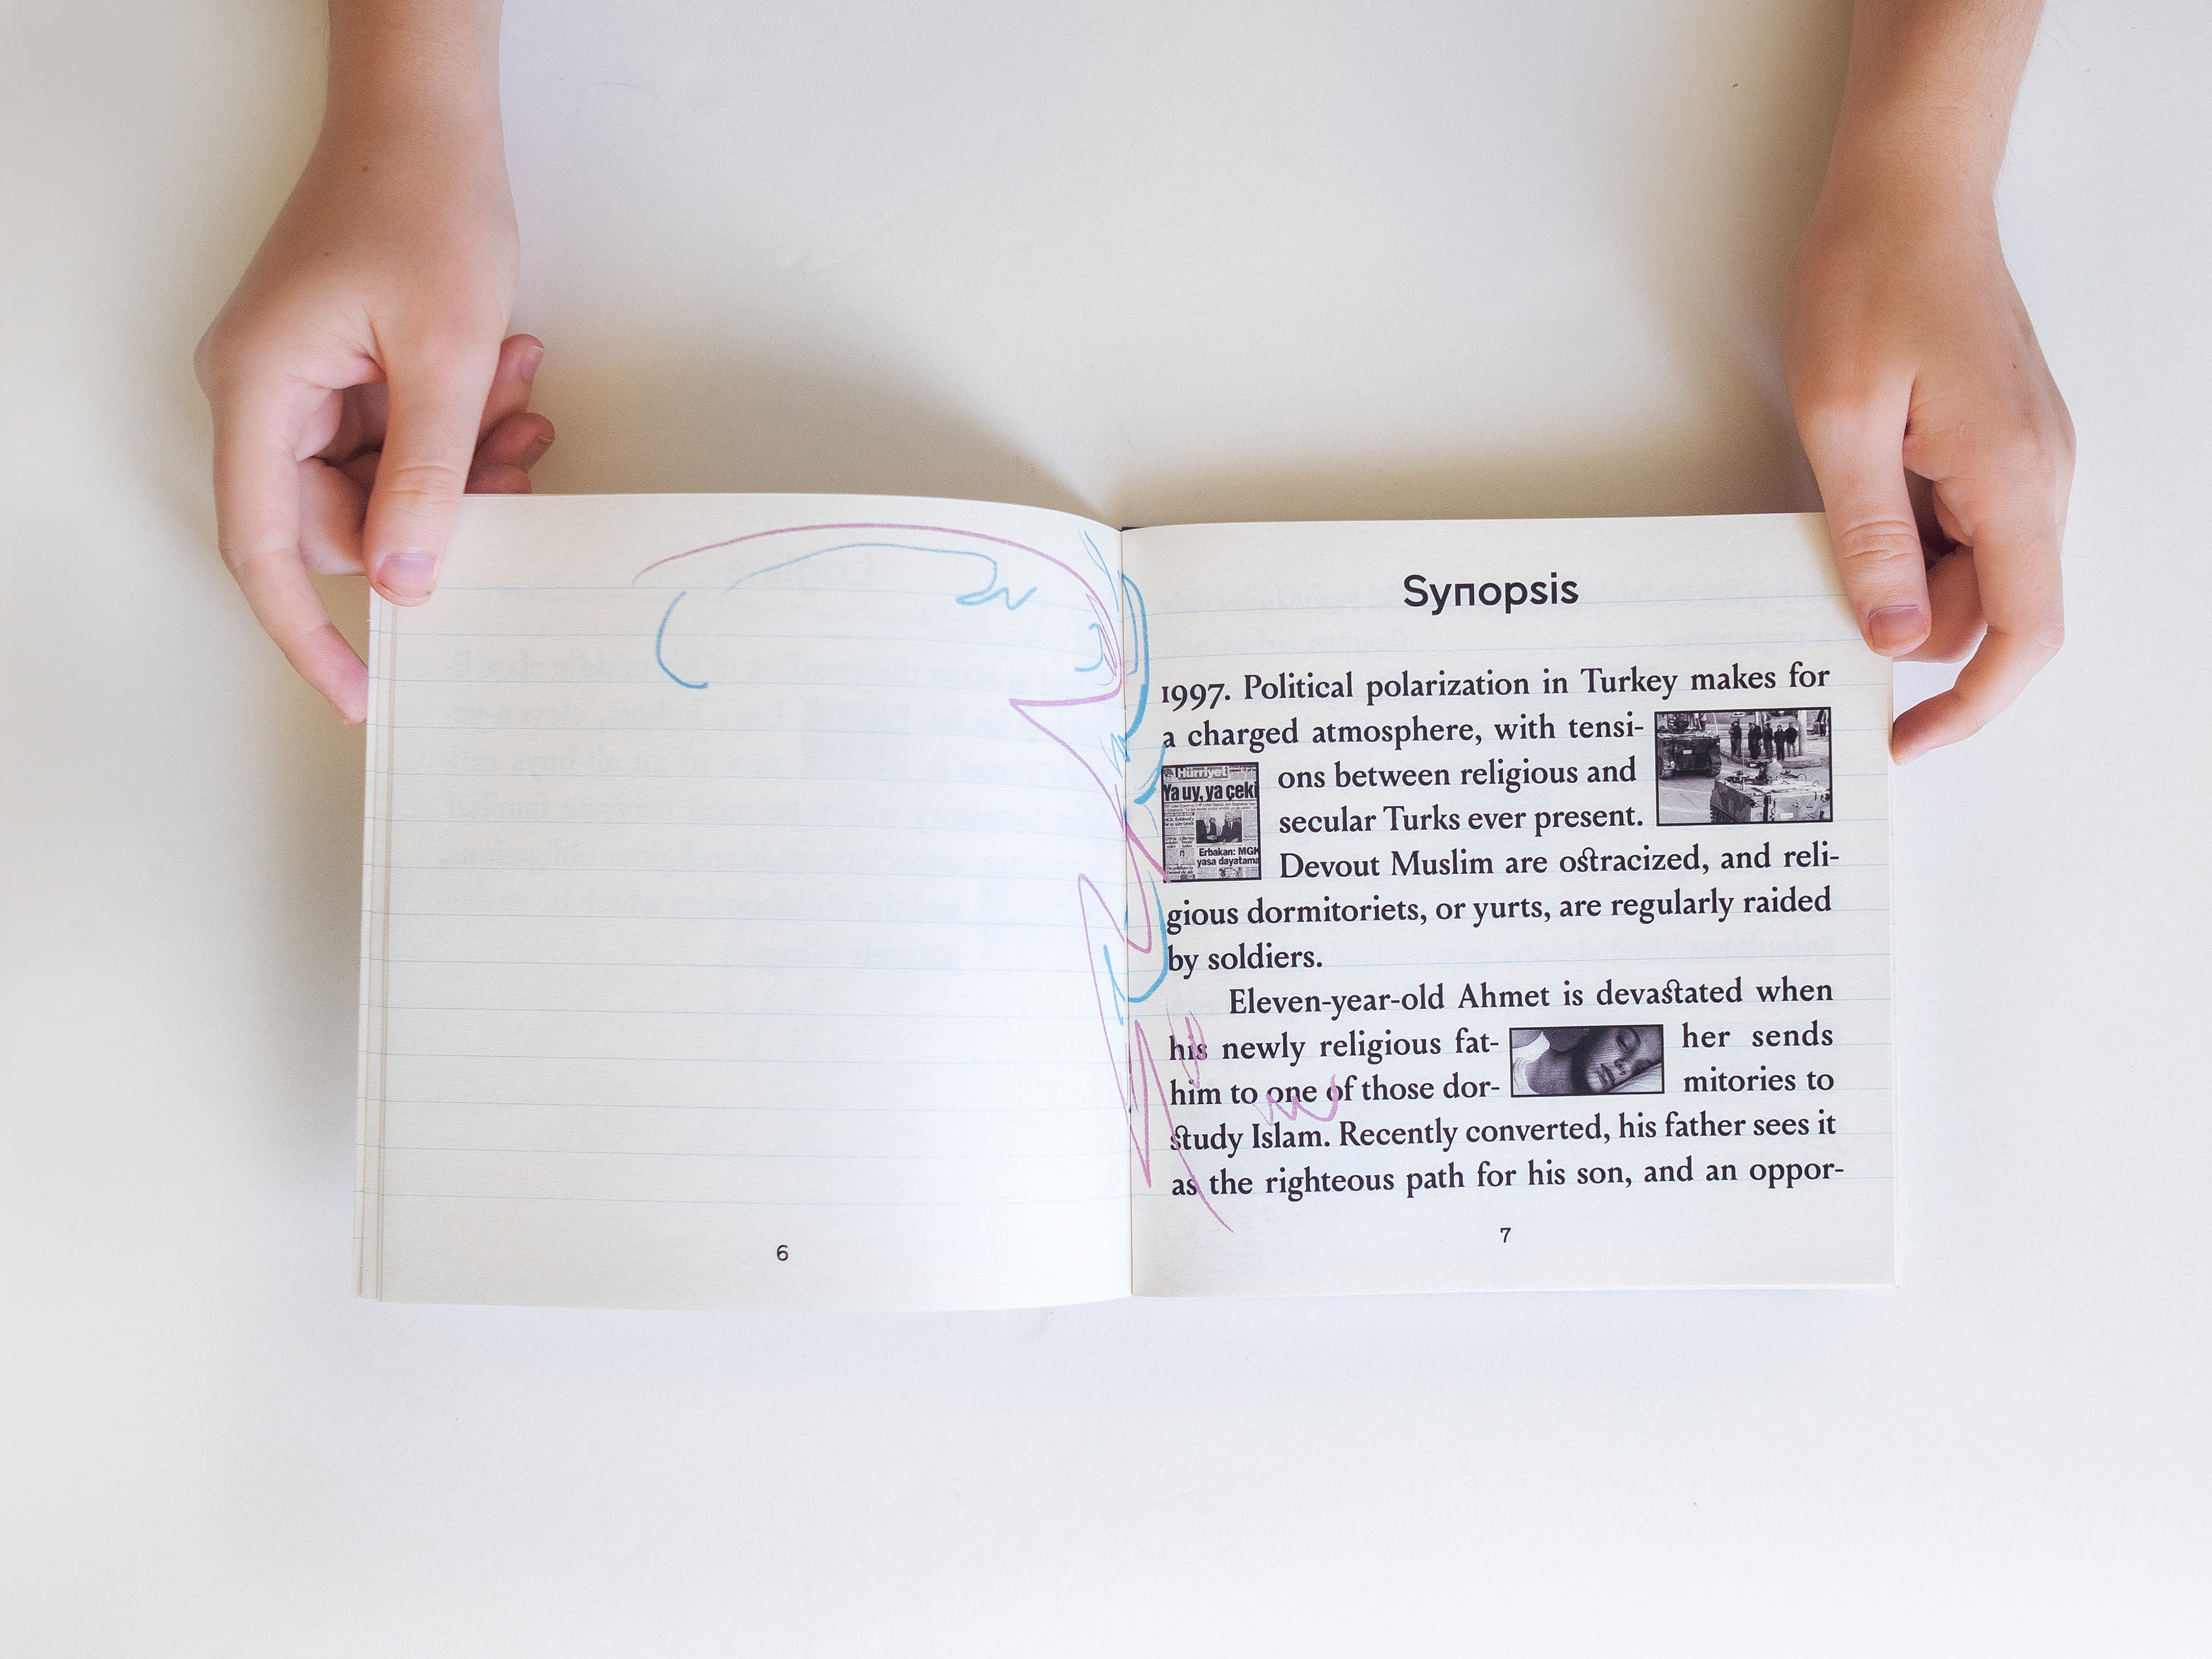 Synopsis
1997. Political polarization in Turkey makes for
a charged atmosphere, with tensi-
ons between religious and
secular Turks ever present.
Devout Muslim are ostracized, and reli-
gious dormitoriets, or yurts, are regularly raided
by soldiers.
Hürriyet
Ya uy, ya çeki
Erbakan: MGK
yasa dayatama
Eleven-year-old Ahmet is devastated when
his newly religious fat- her sends
him to one of those dor- mitories to
study Islam. Recently converted, his father sees it
as the righteous path for his son, and an oppor-
6
7